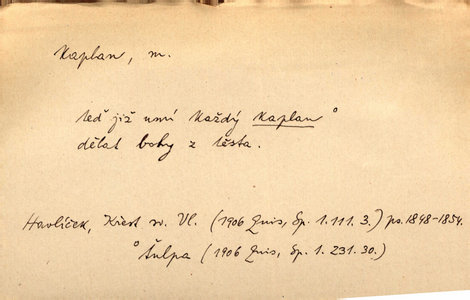 Kaplan, m.
teď již umí každý Kaplan°
dělat bohy z těsta.
Havlíček, Křest sv. Vl. (1906 Quis, Sp. 1.111.3.) ps. 1848-1854.
° Šulpa (1906 Quis, Sp. 1.231.30.)